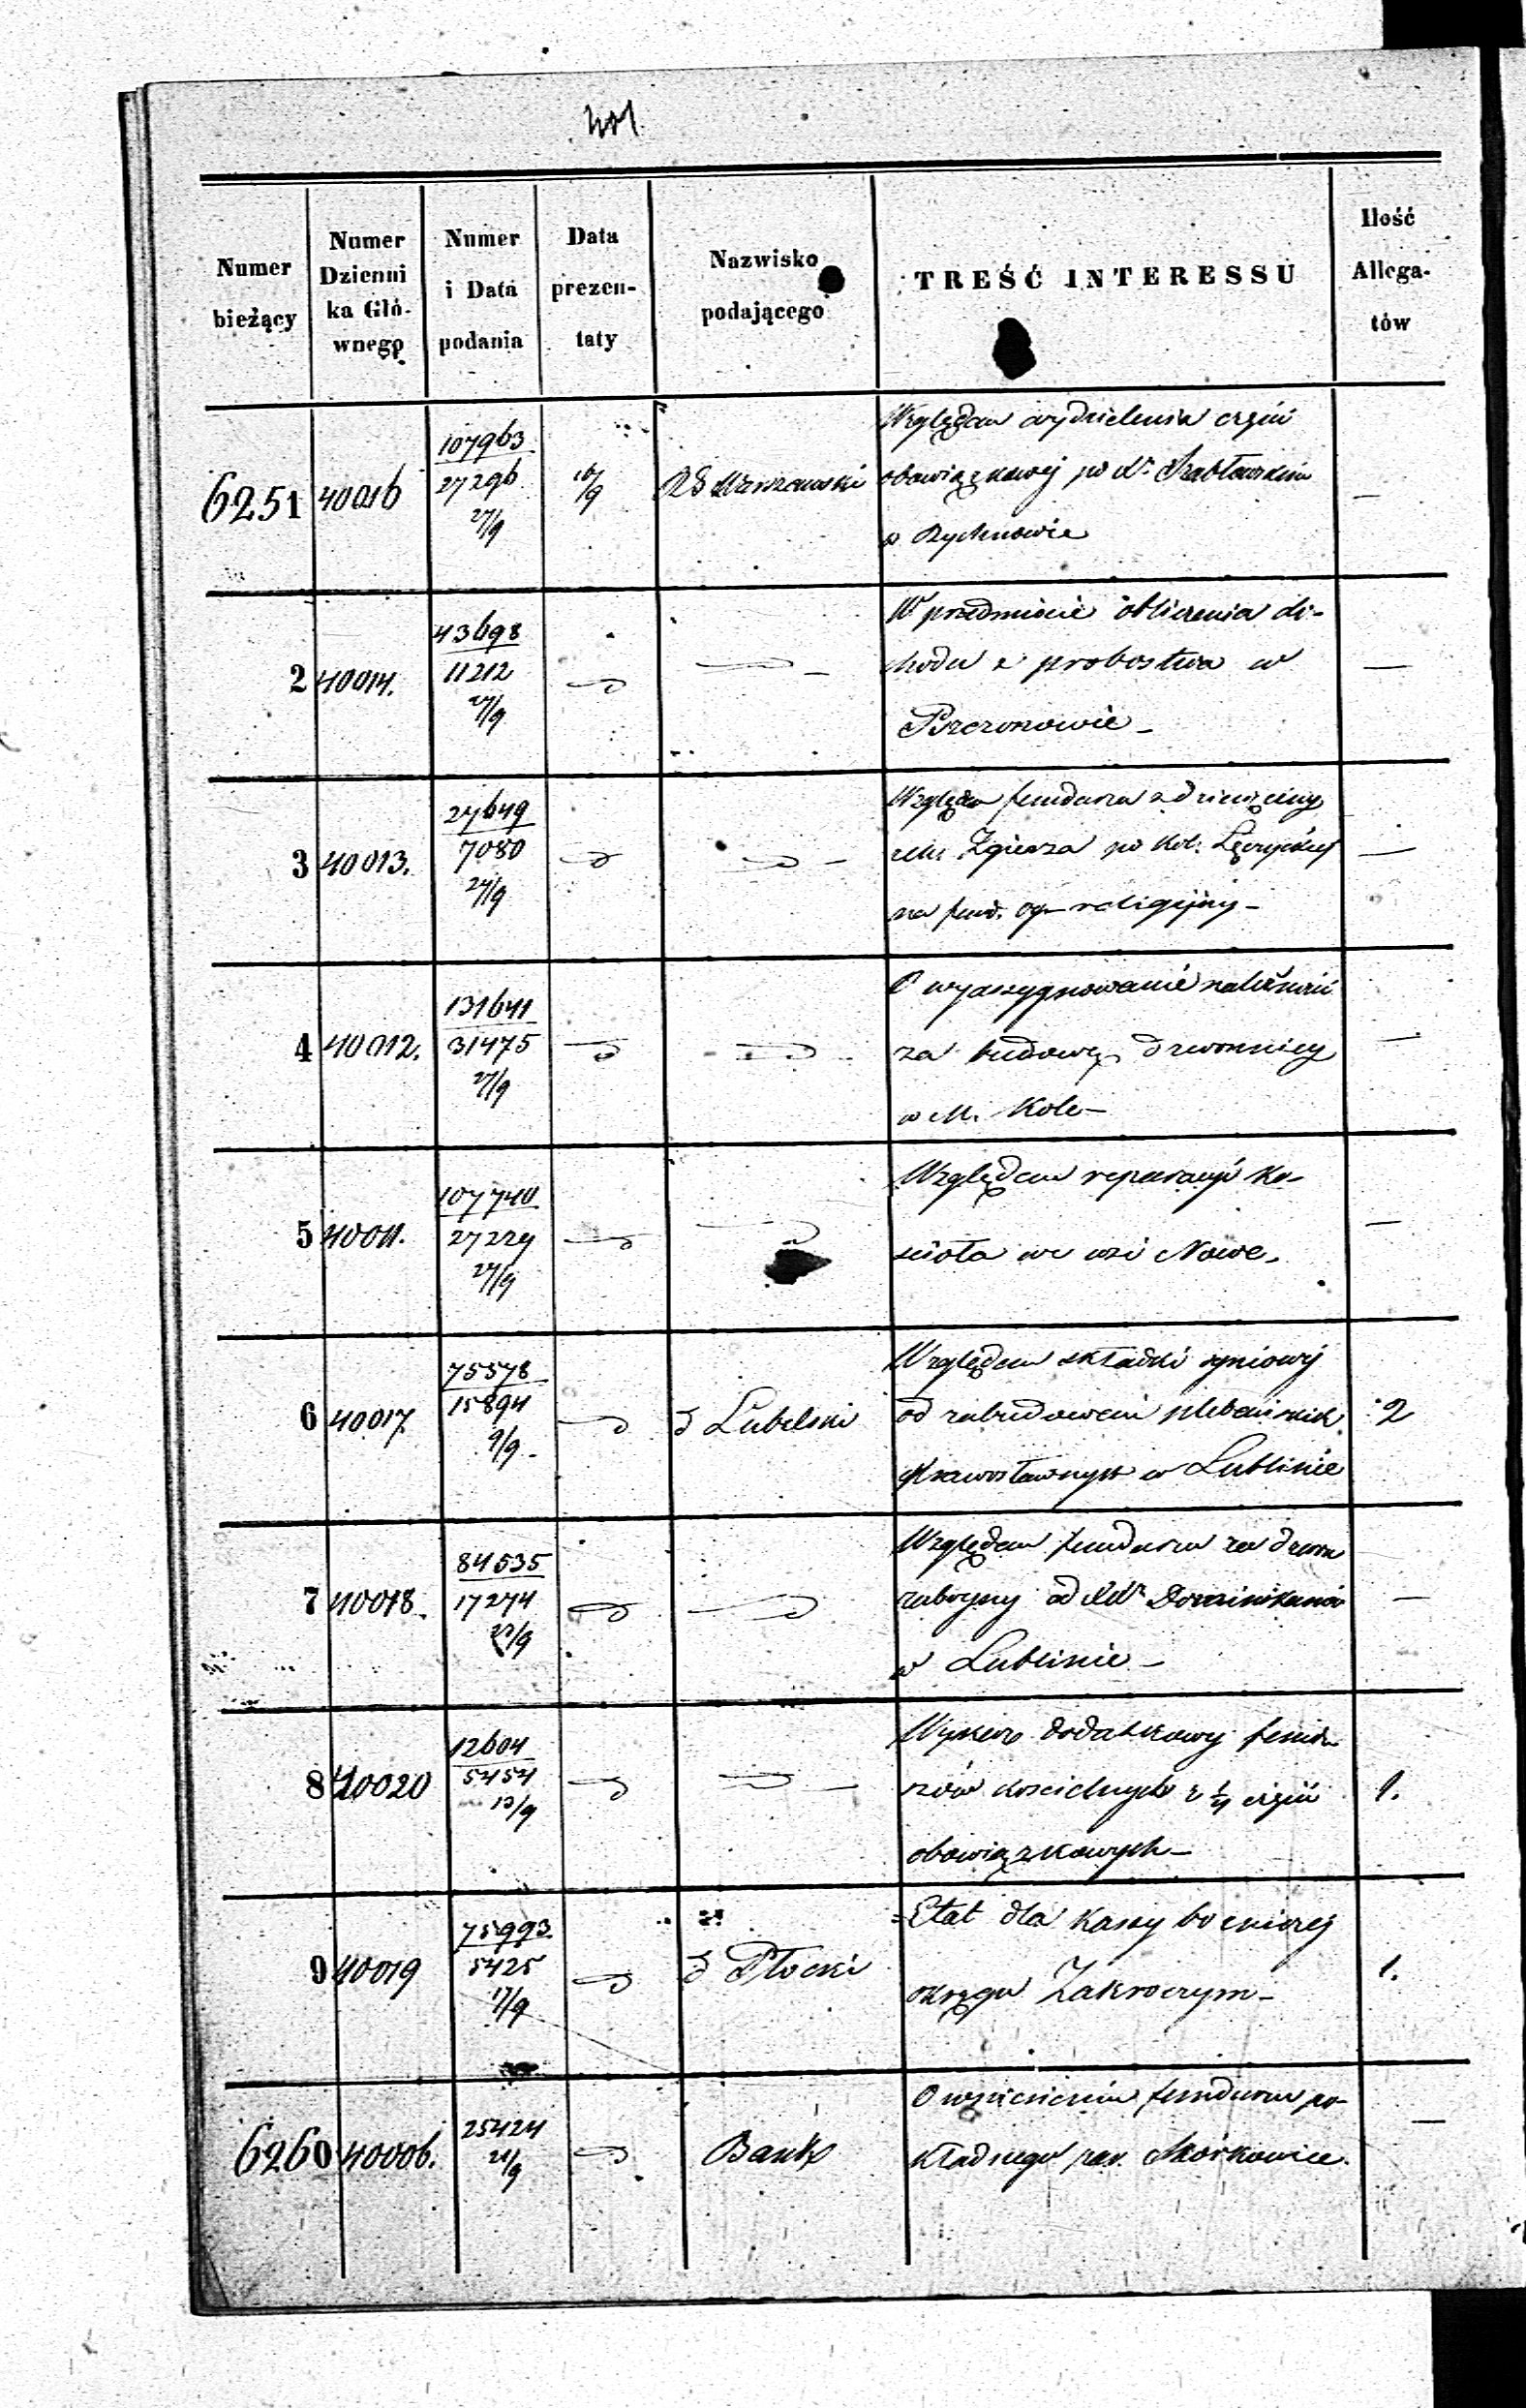 401
Numer bieżący
Numer Dzienni ka Głó- wnego
Numer i Data podania
Data prezen- taty
Nazwisko podającego
TREŚĆ INTERESSU
Ilość Allega- tów
6251 40016 107963 27296 27/9 16/9 RG Warszawski
Względem wydzielenia części
obowiązkowej po X.
w Rychnowie
—
2 40014. 43698 11212 27/9
W przedmiocie obliczenia do-
chodu z probostwa w
Pszczonowie —
—
3 40013. 27649 7080 24/9
Względem funduszu z dziesięciny
Zgierza po Kol. Łęczyckiej
na fund. religijny —
—
4 40012. 131641 31475 27/9
O wyassygnowanie należności
za budowę dzwonnicy
w M. Kole —
—
5 40011. 107740 27229 27/9
Względem reparacyi ko-
ścioła we wsi Nowe.
—
6 40017. 75378 15894 9/9 Lubelski
Względem składki ogniowej
od zabudowań plebańskich
prawosławnych w Lublinie
2
7 40018. 84535 17274 23/9
Względem funduszu za drzewo
od XX. Dominikanów
w Lublinie —
—
8 40020 12604 5454 13/9
Wykaz dodatkowy fundu-
szów kościelnych z 1/4 części
obowiązkowych —
1.
9 40019 75993. 5425 17/9 Płocki
Etat dla kasy bożniczej
okręgu Zakroczym —
1.
6260 40006. 25424 21/9 Bank
O wzniesieniu funduszu po-
kładnego par.
—